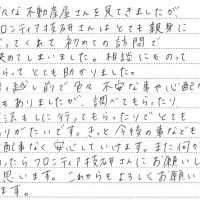 々な不動産屋さんを見てきましたが
フロンティア技研さんはとても親身に
ってくれて初めての訪問で
決めてしまいました。相談にものって
らってとても助かりました。
っ越し前で色々不安な事や心配な
もありましたが、調べてもらったり
法もしに行ってもらったりでとても
りがたいです。きっと今後の事なども
配事なく安心していけます。また何か
ったらフロンティア技研さんにお願いし
思います。これからもよろしくお願い
ます。